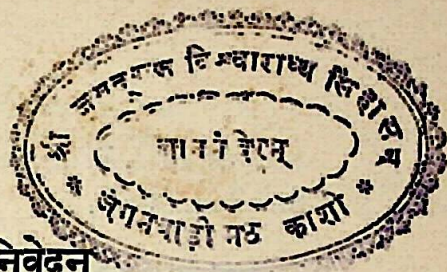 श्री जगद्गुरु विश्वाराध्य सिंहासन
ज्ञान
जंगमवाड़ी मठ काशी
निवेदन